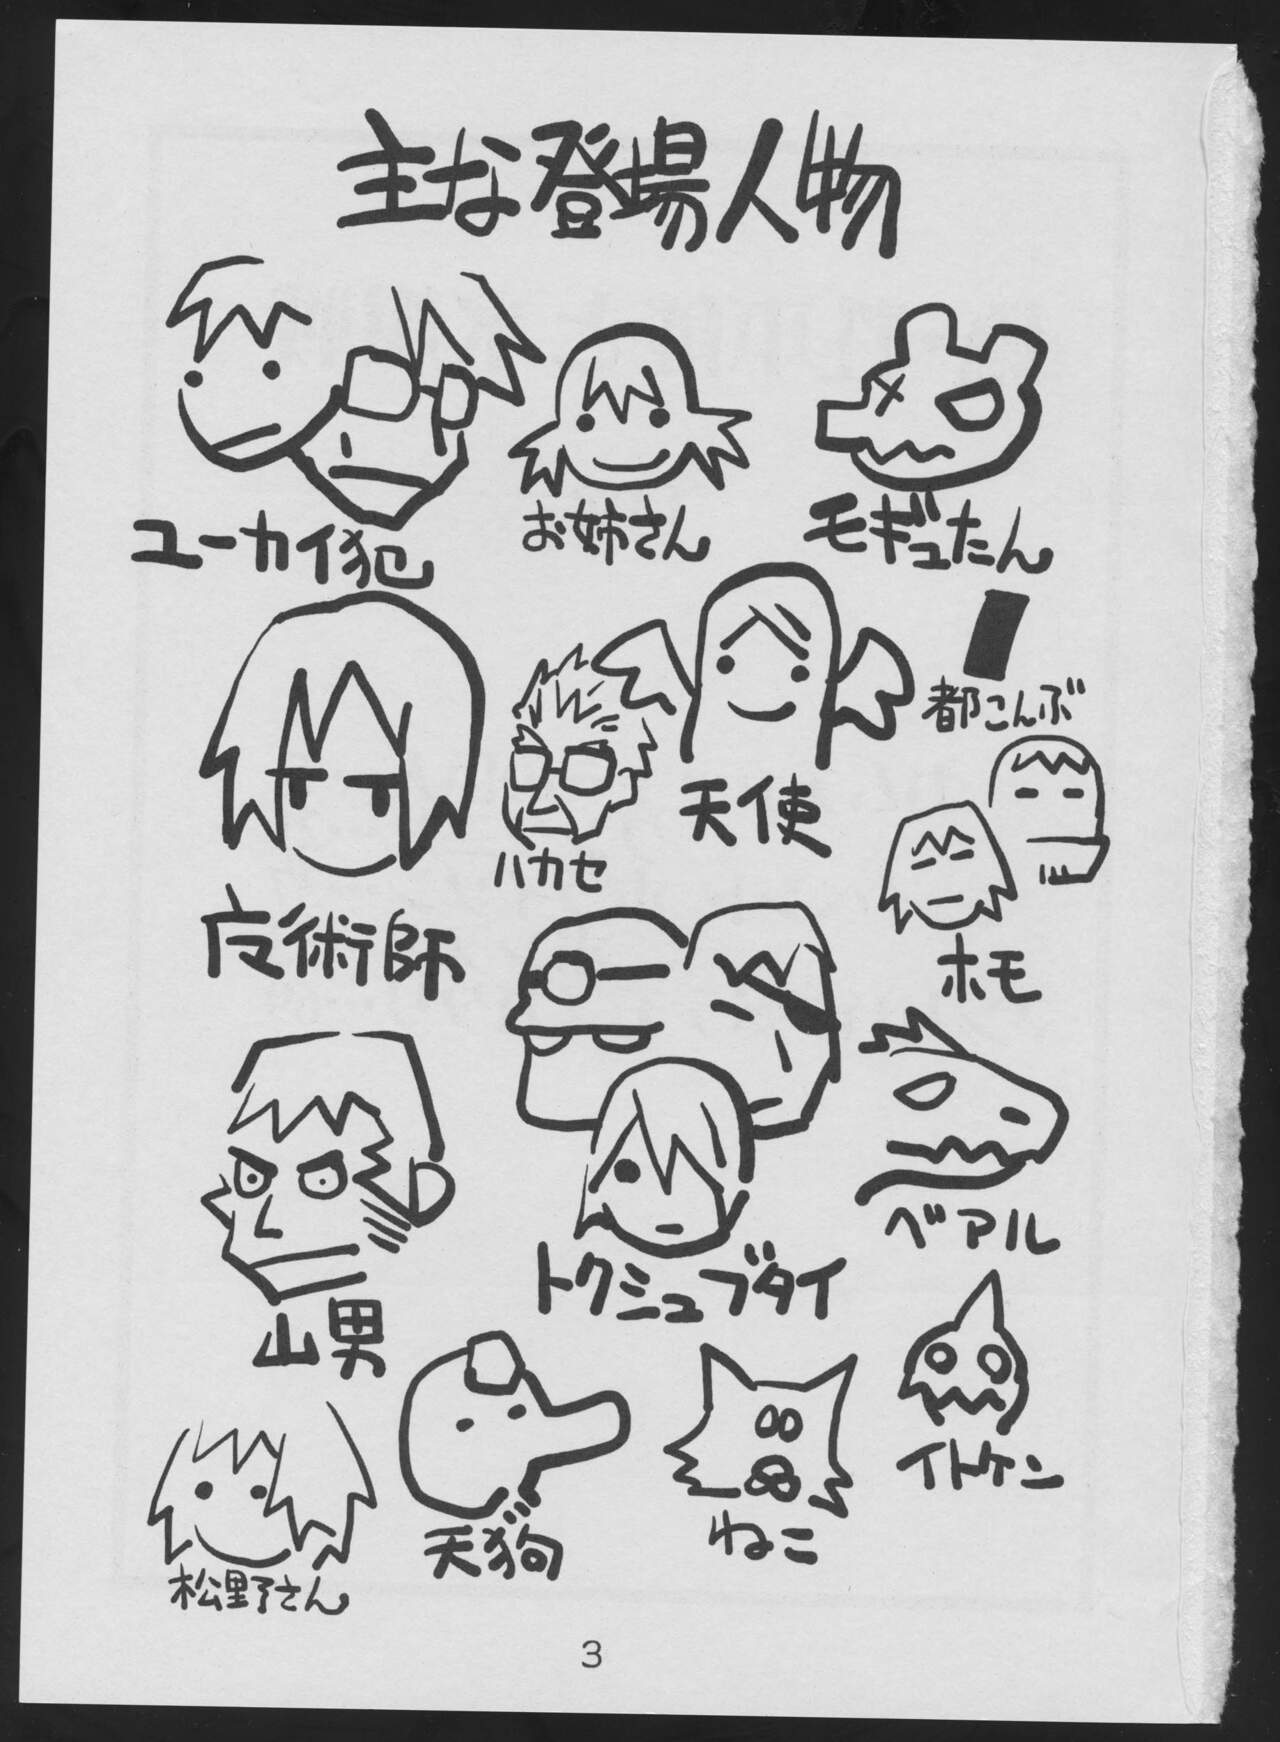 主な登場人物
ユーカイ犯
お姉さん
モギュたん
都こんぶ
天使
ハカセ
魔術師
ホモ
ベアル
トクシュブタイ
山男
イトケン
ねこ
天狗
松野さん
3